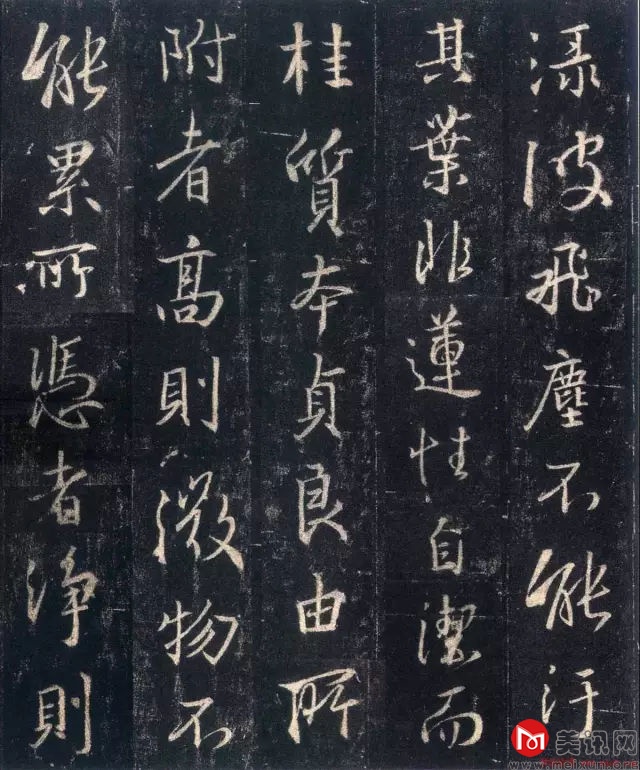 渌波飛塵不能汙
其葉非蓮性自潔而
桂質本貞良由所
附者高則微物不
能累所憑者淨則
美讯网
www.meixun.org